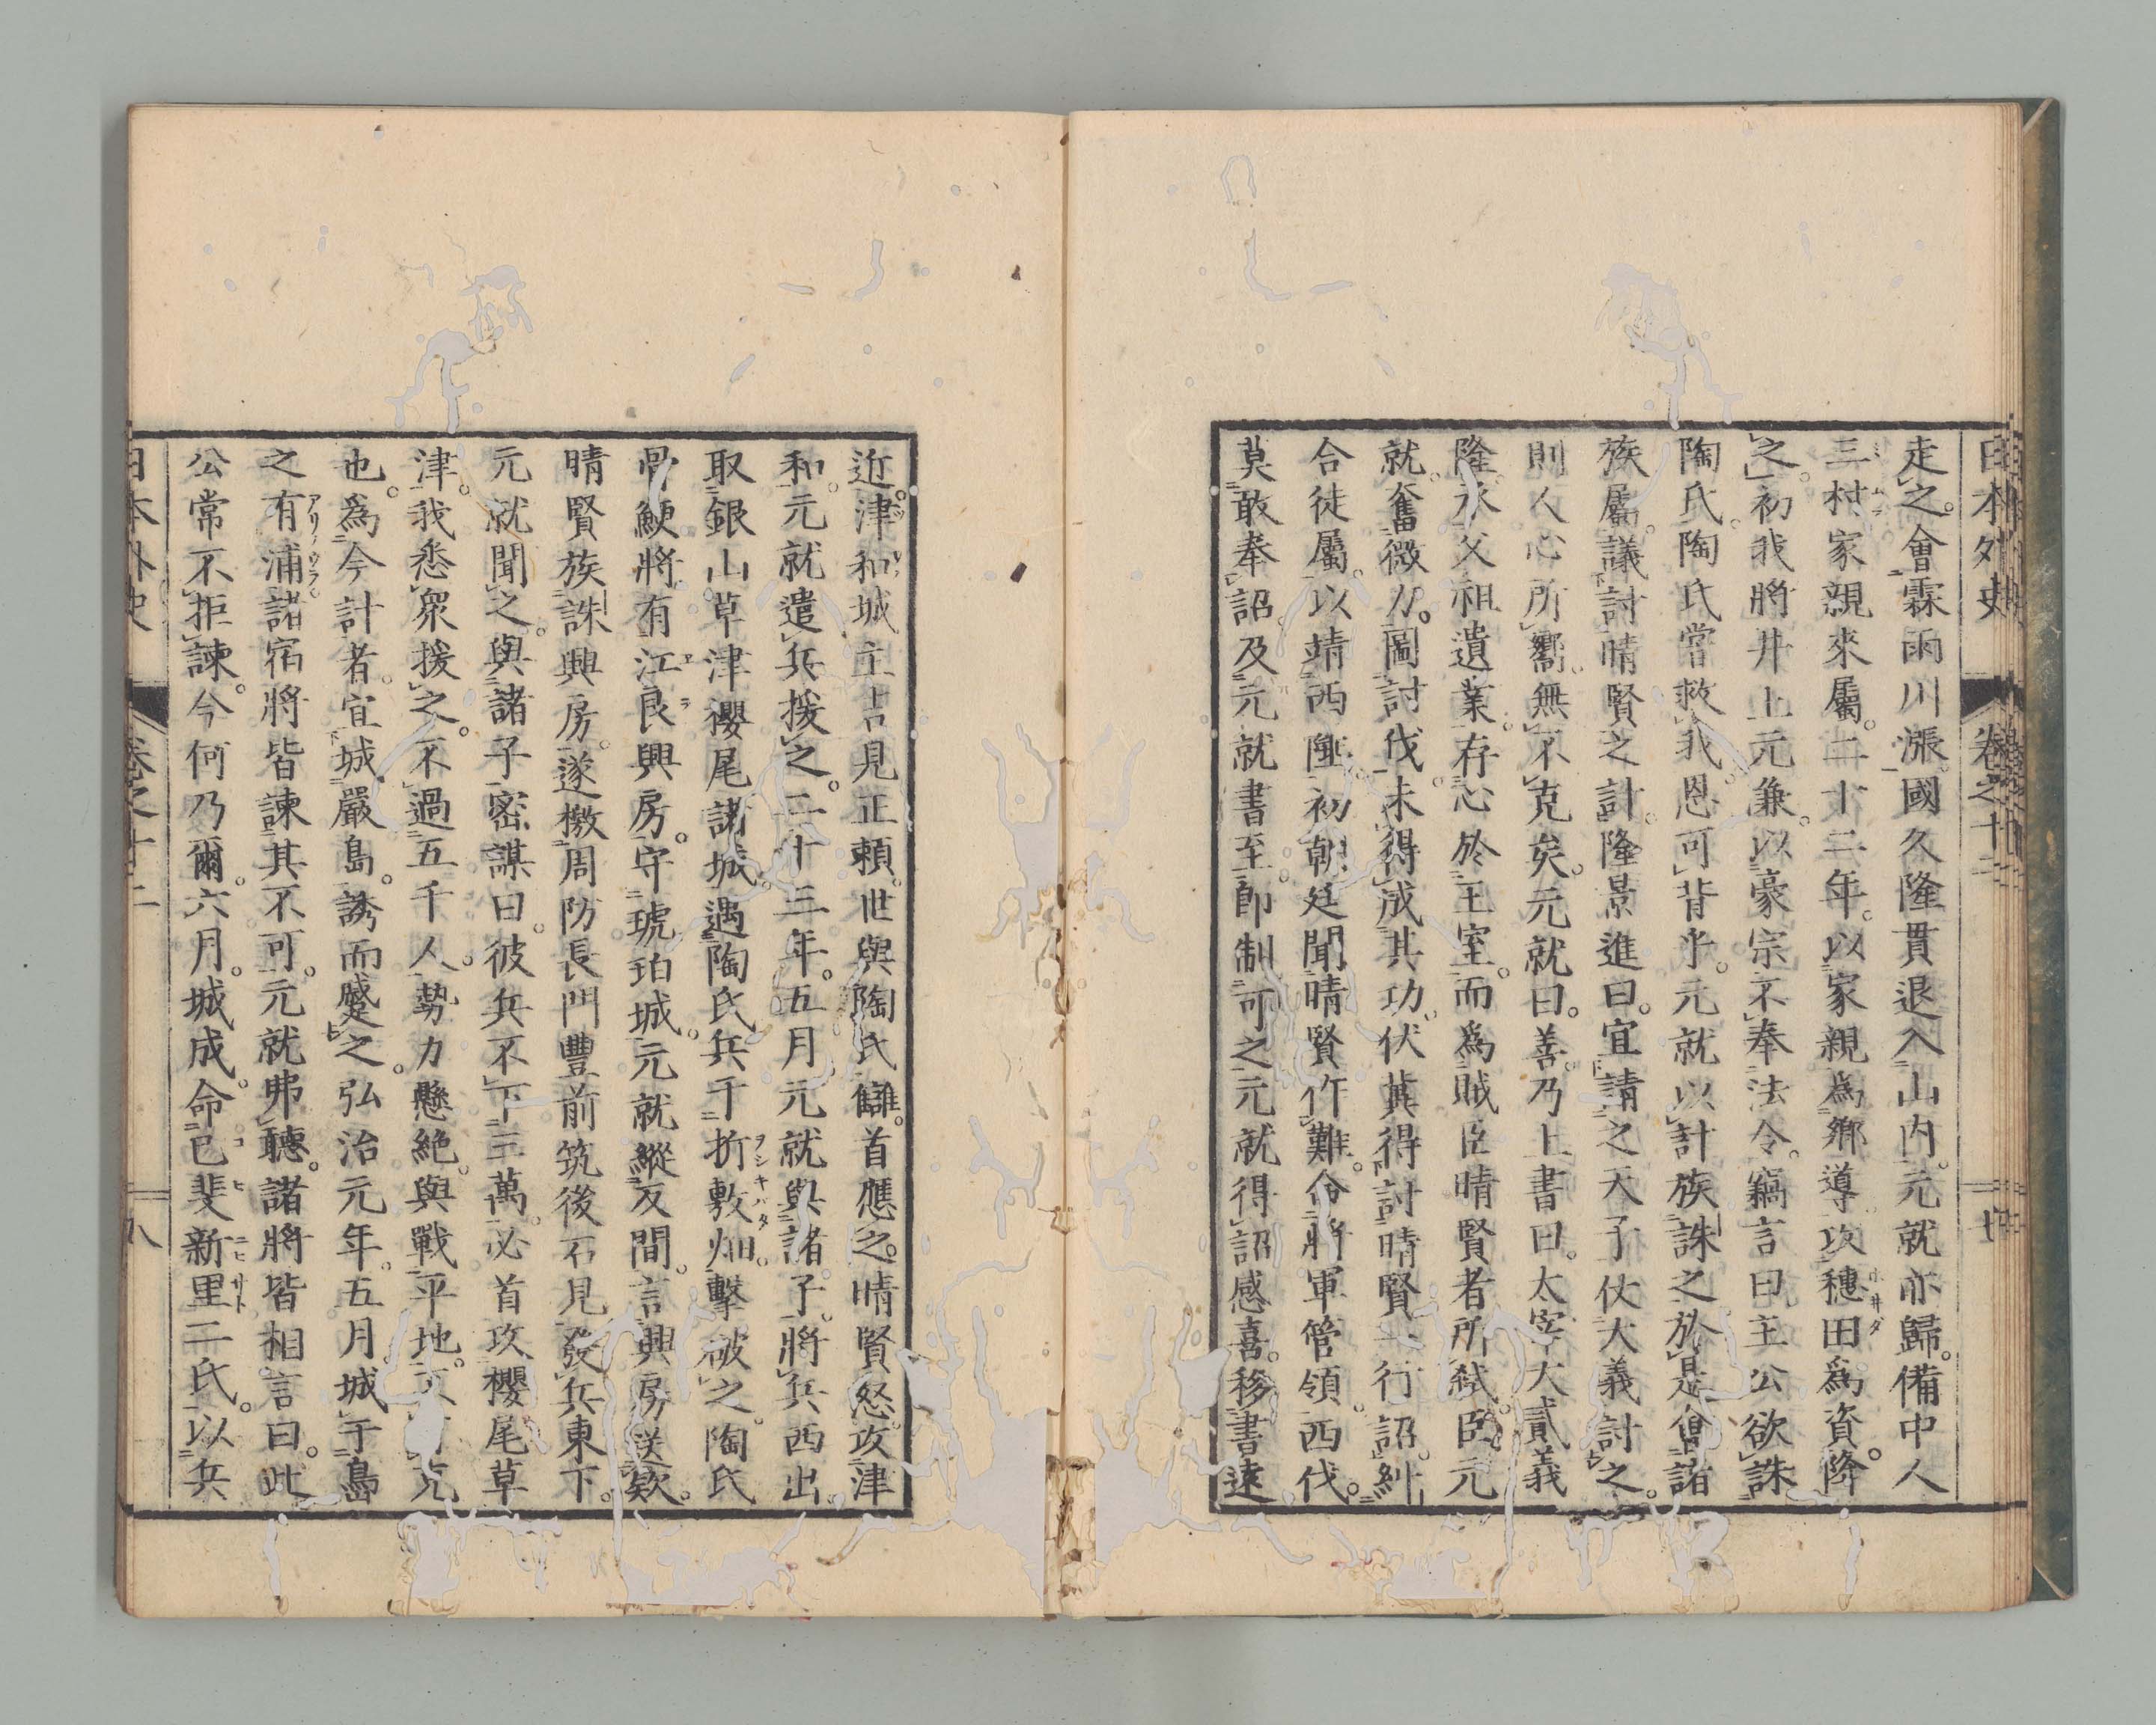 日本外史 卷之十二 七
走之。會霖雨川漲。國久隆貫退入山内。元就亦歸。備中人
三村家親來屬。二十二年。以家親爲鄉導。攻穗田爲資。降
之。初我將井上元兼。以豪宗不奉法令。竊言曰。主公欲誅
陶氏。陶氏嘗救我。恩可背乎。元就以計族誅之。於是會諸
族屬。議討晴賢之計。隆景進曰。宜請之天子。仗大義討之。
則人心所嚮。無不克矣。元就曰。善。乃上書曰。太宰大貳義
隆。承父祖遺業。存心於王室。而爲賊臣晴賢者所弑。臣元
就。奮微力。圖討伐。未得成其功。伏冀得討晴賢一行詔。糾
合徒屬。以靖西陲。初朝廷聞晴賢作難。命將軍管領。西伐。
莫敢奉詔。及元就書至。卽制可之。元就得詔感喜。移書遠
近。津和城主吉見正賴。世與陶氏讎。首應之。晴賢怒。攻津
和。元就遣兵援之。二十三年。五月元就與諸子。將兵西出。
取銀山。草津櫻尾諸城。遇陶氏兵于折敷畑。擊破之。陶氏
骨鯁將。有江良興房。守琥珀城。元就縱反間。言興房送欵。
晴賢族誅興房。遂檄周防長門豐前筑後石見。發兵東下。
元就聞之。與諸子密謀曰。彼兵不下三萬。必首攻櫻尾草
津。我悉眾援之。不過五千人。勢力懸絕。與戰平地。克
也。爲今計者。宜城嚴島。誘而蹙之。弘治元年。五月城于島
之有浦。諸宿將皆諫其不可。元就弗聽。諸將皆相言曰。此
公常不拒諫。今何乃爾。六月。城成。命已斐新里二氏。以兵
日本外史 卷之十二 八